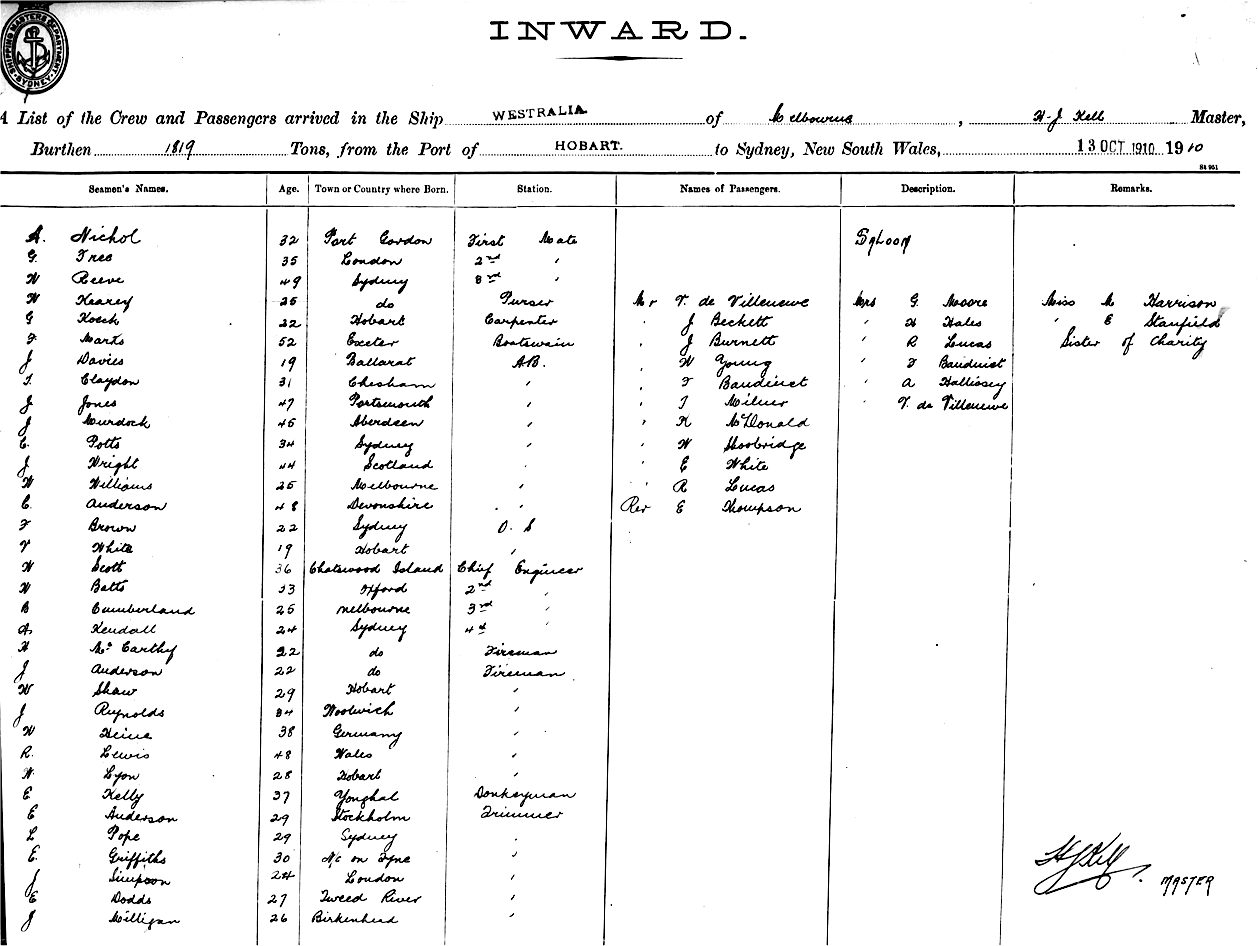 SHIPPING MASTERS DEPARTMENT SYDNEY
INWARD.
A List of the Crew and Passengers arrived in the Ship WESTRALIA of Melbourne, H-J Kell Master,
Burthen 1819 Tons, from the Port of HOBART. to Sydney, New South Wales, 13 OCT 1910 1910
Seamen's Names. Age. Town or Country where Born. Station. Names of Passengers. Description. Remarks.
A. Nichol 32 Port Gordon First Mate Saloon
G. Tree 35 London 2nd "
W Reeve 49 Sydney 3rd "
W Kearey do Purser Mr V. de Villenewe Mrs G. Moore Miss M Harrison
G Koeck 22 Hobart Carpenter " J Beckett " H Hales " E Stanfield
F Marks 52 Exeter Boatswain " J Burnett " R Lucas Sister of Charity
J Davies 19 Ballarat A.B. " W Young " F Baudinet
T. Claydon 31 Chesham " " F Baudinet " A Hallissey
J Jones 47 Portsmouth " " T Milner " V. de Villenewe
J Murdoch 45 Aberdeen " " K McDonald
E. Potts 34 Sydney " " W Shoobridge
J Wright 44 Scotland " " E White
W Williams 25 Melbourne " " R Lucas
C. Anderson 48 Devonshire " Rev E Thompson
F Brown 22 Sydney O.S
V White 19 Hobart "
W Scott 36 Chatswood Island Chief Engineer
W Batts 33 Oxford 2nd "
B Cumberland 25 Melbourne 3rd "
A. Kendall 24 Sydney 4th "
H McCarthy 22 do Fireman
J Anderson 22 do Fireman
W Shaw 29 Hobart "
J Reynolds 34 Woolwich "
W Heine 38 Germany "
R. Lewis 48 Wales "
W. Lyon 28 Hobart "
E Kelly 37 Yonghal Donkeyman
E Anderson 29 Stockholm Trimmer
L Pope 29 Sydney "
E. Griffiths 30 N/c on Tyne "
J Simpson 24 London "
E Dodds 27 Tweed River "
J Milligan 26 Birkenhead "
HJKell MASTER